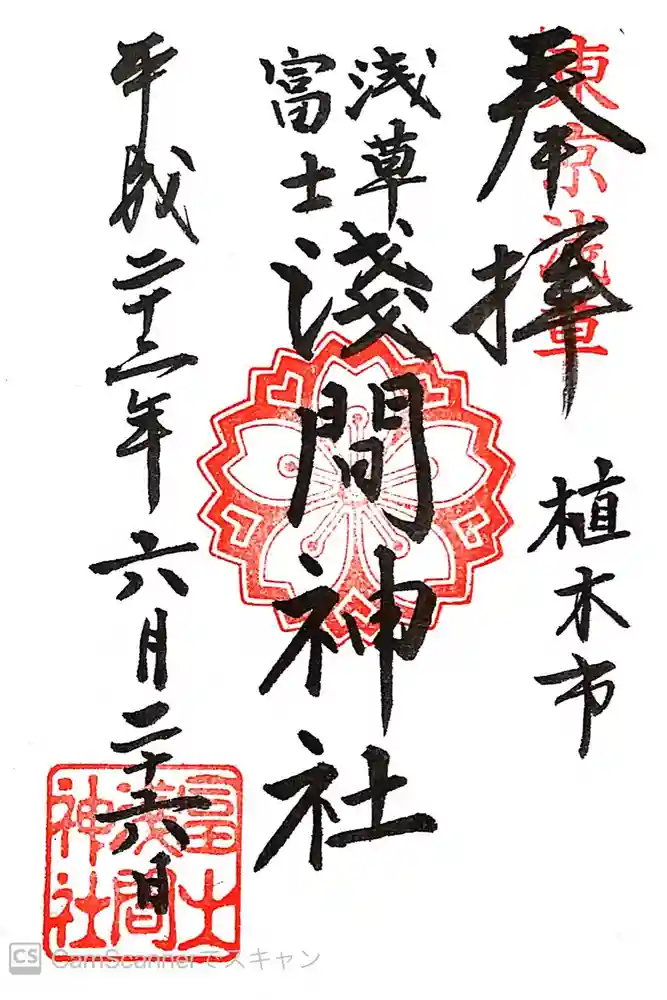 東京浅草
奉拝
植木市
浅草
富士
淺間神社
平成二十二年六月二十六日
富士
浅間
神社
CS CamScannerでスキャン